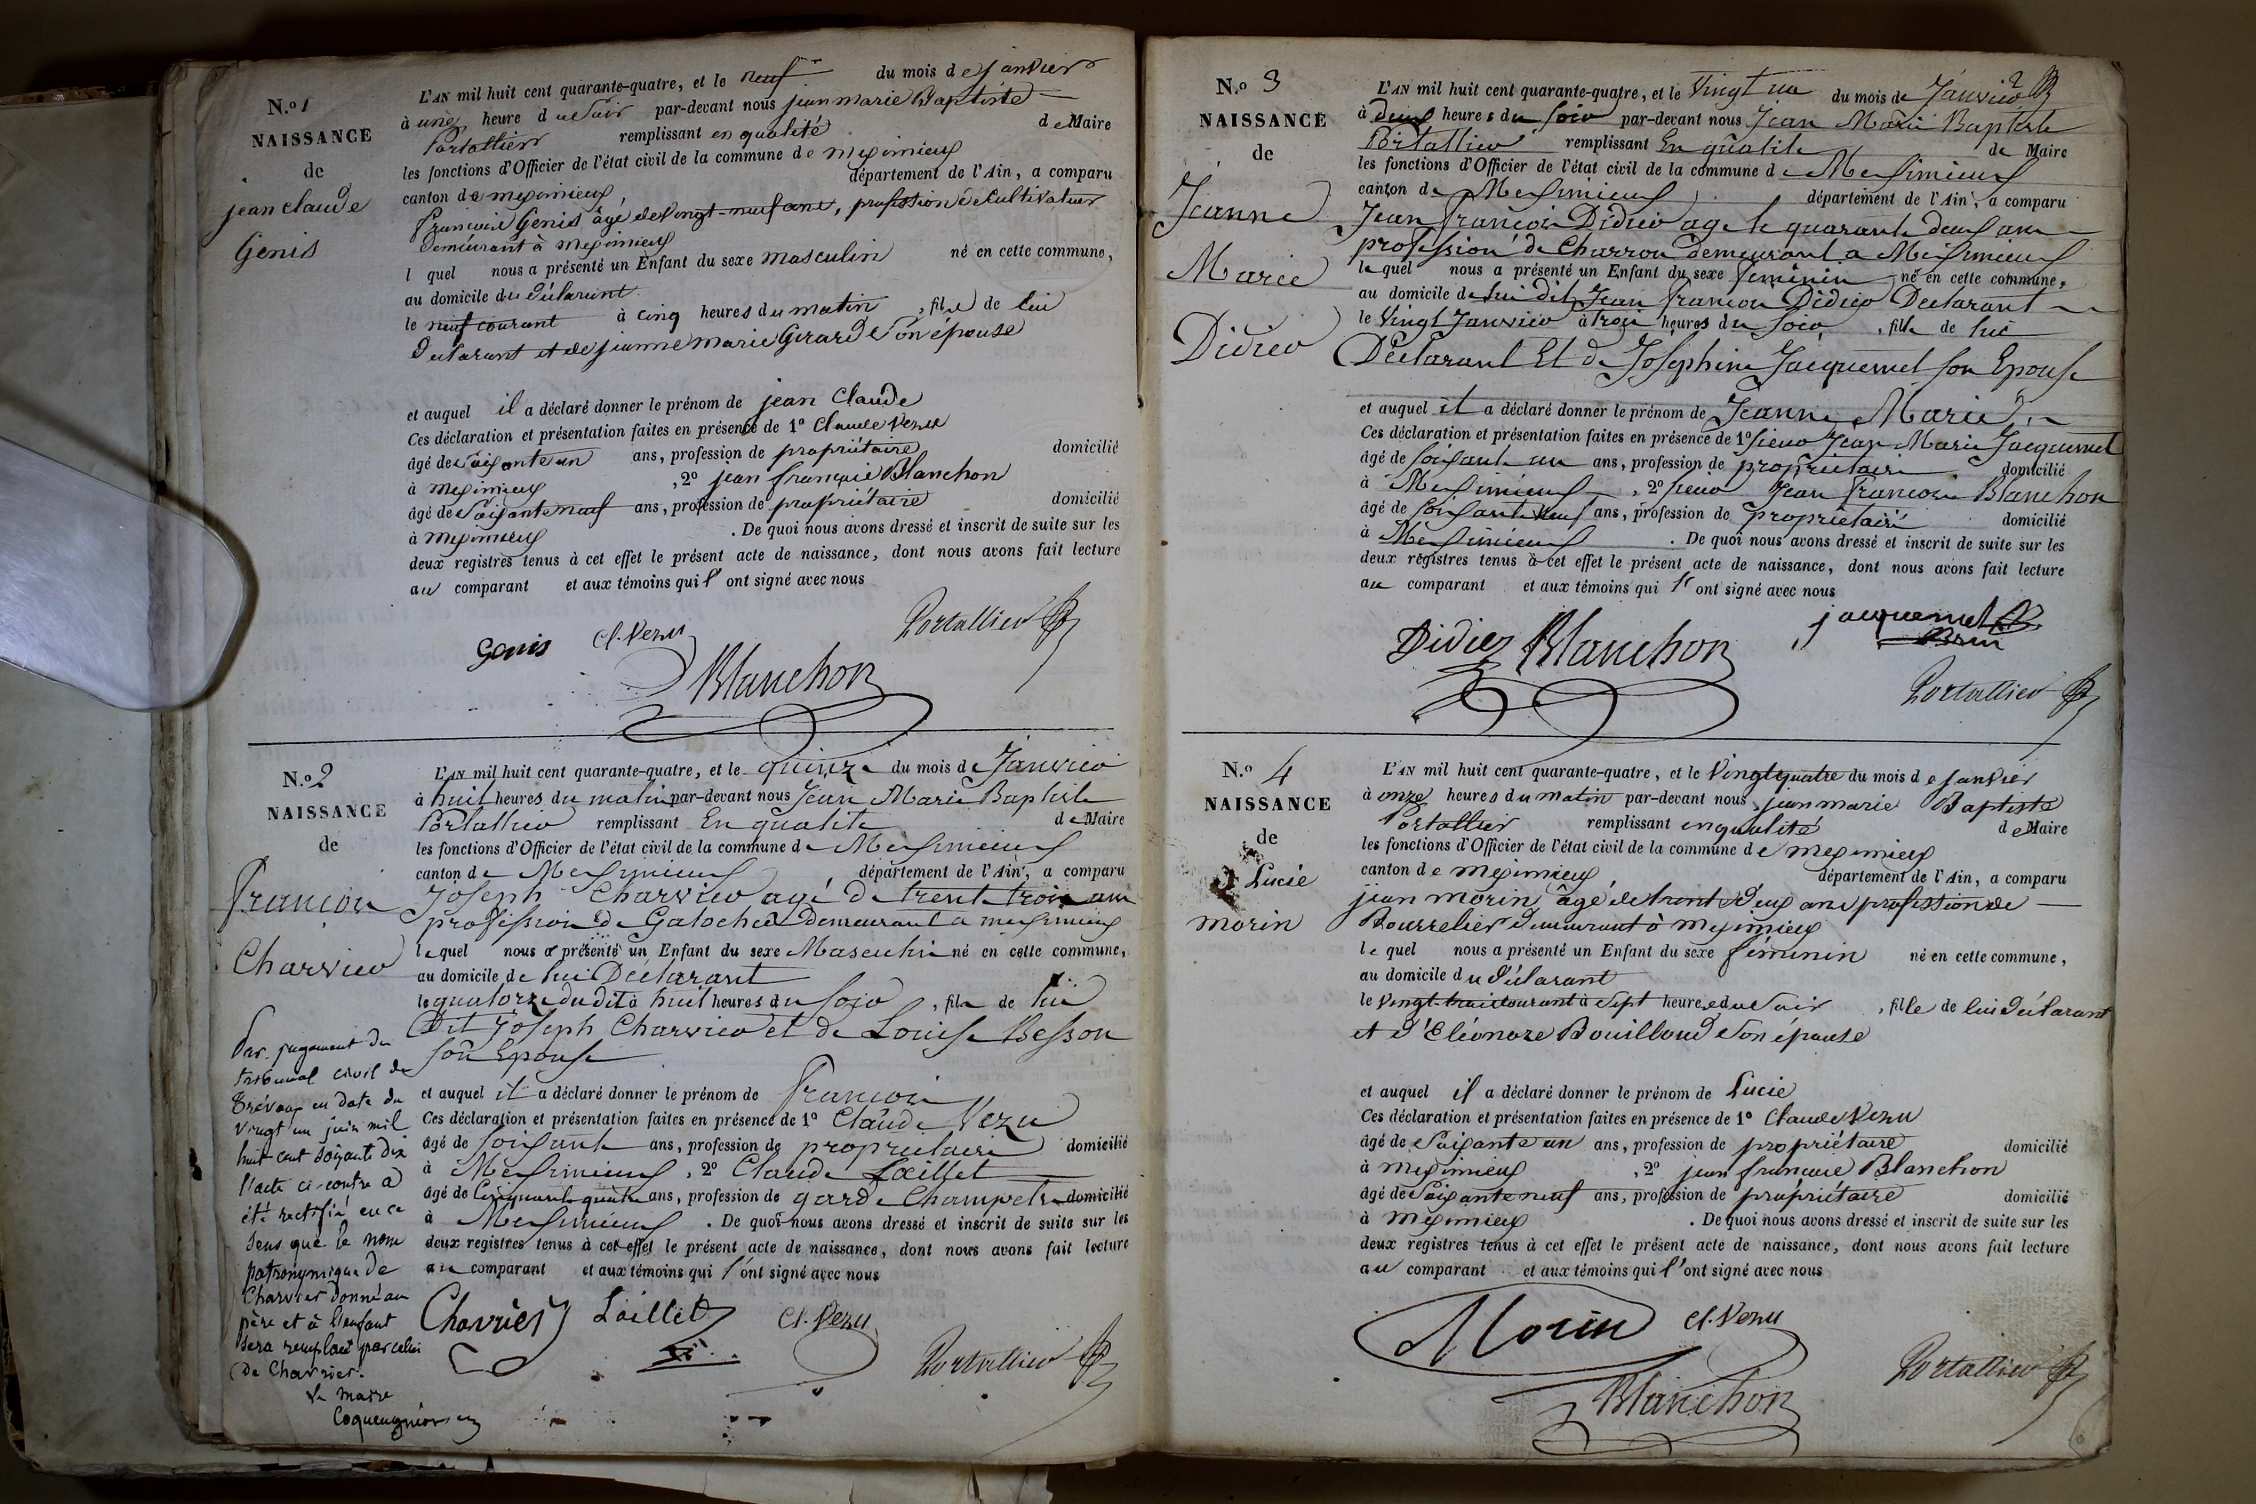 N.º 1
NAISSANCE
de
jean claude
Genis
L'AN mil huit cent quarante-quatre, et le neuf du mois de janvier
à une heure du soir par-devant nous jean marie Baptiste
Portallier remplissant en qualité de Maire
les fonctions d'Officier de l'état civil de la commune de meximieux
canton de meximieux, département de l'Ain, a comparu
françois Genis âgé de vingt-neuf ans, profession de cultivateur
demeurant à meximieux
lequel nous a présenté un Enfant du sexe masculin né en cette commune,
au domicile du déclarant
le neuf courant à cinq heures du matin, fils de lui
déclarant et de jeanne marie Girard son épouse
et auquel il a déclaré donner le prénom de jean claude
Ces déclaration et présentation faites en présence de 1º claude Venu
âgé de soixante un ans, profession de propriétaire domicilié
à meximieux, 2º jean françois Blanchon
âgé de soixante neuf ans, profession de propriétaire domicilié
à meximieux. De quoi nous avons dressé et inscrit de suite sur les
deux registres tenus à cet effet le présent acte de naissance, dont nous avons fait lecture
au comparant et aux témoins qui l'ont signé avec nous
Genis Cl. Venu Portallier
Blanchon
N.º 2
NAISSANCE
de
François
Charvier
Par jugement du
tribunal civil de
Trévoux en date du
vingt un juin mil
huit cent soixante dix
l'acte ci-contre a
été rectifié en ce
sens que le nom
patronymique de
Charvier donné au
père et à l'enfant
sera remplacé par celui
de Charrier.
Le maire
L'AN mil huit cent quarante-quatre, et le quinze du mois de Janvier
à huit heures du matin par-devant nous Jean Marie Baptiste
Portallier remplissant En qualité de Maire
les fonctions d'Officier de l'état civil de la commune de Meximieux
canton de Meximieux, département de l'Ain, a comparu
Joseph Charvier agé de trente trois ans
profession de Galocher demeurant a meximieux
lequel nous a présenté un Enfant du sexe Masculin né en cette commune,
au domicile de lui Déclarant
le quatorze du dit à huit heures du soir, fils de lui
Dit Joseph Charvier et de Louise Besson
son Epouse
et auquel il a déclaré donner le prénom de François
Ces déclaration et présentation faites en présence de 1º Claude Venu
âgé de soixante ans, profession de propriétaire domicilié
à Meximieux, 2º Claude Laillet
âgé de Cinquante quatre ans, profession de garde Champetre domicilié
à Meximieux. De quoi nous avons dressé et inscrit de suite sur les
deux registres tenus à cet effet le présent acte de naissance, dont nous avons fait lecture
au comparant et aux témoins qui l'ont signé avec nous
Charrier Laillet Cl. Venu
Portallier
2
N.º 3
NAISSANCE
de
Jeanne
Marie
Didier
L'AN mil huit cent quarante-quatre, et le Vingt un du mois de Janvier
à deux heures du soir par-devant nous Jean Marie Baptiste
Portallier remplissant En qualité de Maire
les fonctions d'Officier de l'état civil de la commune de Meximieux
canton de Meximieux, département de l'Ain, a comparu
Jean François Didier agé de quarante deux ans
profession de Charron demeurant a Meximieux
lequel nous a présenté un Enfant du sexe féminin né en cette commune,
au domicile de lui dit Jean François Didier Déclarant
le Vingt Janvier à trois heures du soir, fille de lui
Déclarant Et de Josephine Jacquemet son Epouse
et auquel il a déclaré donner le prénom de Jeanne Marie
Ces déclaration et présentation faites en présence de 1º sieur Jean Marie Jacquemet
âgé de soixante un ans, profession de propriétaire domicilié
à Meximieux, 2º sieur Jean François Blanchon
âgé de soixante neuf ans, profession de propriétaire domicilié
à Meximieux. De quoi nous avons dressé et inscrit de suite sur les
deux registres tenus à cet effet le présent acte de naissance, dont nous avons fait lecture
au comparant et aux témoins qui l'ont signé avec nous
Didier Blanchon jacquemet
Portallier
N.º 4
NAISSANCE
de
Lucie
morin
L'AN mil huit cent quarante-quatre, et le Vingt quatre du mois de janvier
à onze heures du matin par-devant nous jean marie Baptiste
Portallier remplissant en qualité de Maire
les fonctions d'Officier de l'état civil de la commune de meximieux
canton de meximieux, département de l'Ain, a comparu
jean morin âgé de trente deux ans profession de
Bourrelier demeurant à meximieux
lequel nous a présenté un Enfant du sexe féminin né en cette commune,
au domicile du déclarant
le vingt-trois courant à sept heures du soir, fille de lui déclarant
et d'Eléonore Bouilloud son épouse
et auquel il a déclaré donner le prénom de Lucie
Ces déclaration et présentation faites en présence de 1º claude Venu
âgé de soixante un ans, profession de propriétaire domicilié
à meximieux, 2º jean françois Blanchon
âgé de soixante neuf ans, profession de propriétaire domicilié
à meximieux. De quoi nous avons dressé et inscrit de suite sur les
deux registres tenus à cet effet le présent acte de naissance, dont nous avons fait lecture
au comparant et aux témoins qui l'ont signé avec nous
Morin Cl. Venu
Portallier
Blanchon